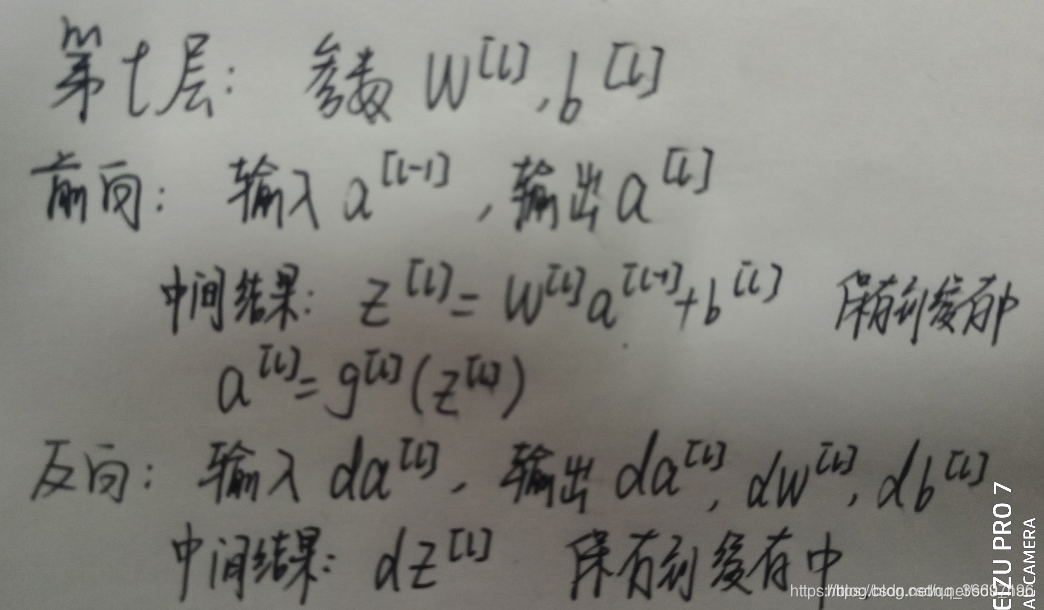 第l层: 参数 W^[l], b^[l]
前向: 输入 a^[l-1], 输出 a^[l]
中间结果: z^[l] = W^[l]a^[l-1]+b^[l] 保存到缓存中
a^[l] = g^[l](z^[l])
反向: 输入 da^[l], 输出 da^[l], dw^[l], db^[l]
中间结果: dz^[l] 保存到缓存中
EIZU PRO 7
AL CAMERA